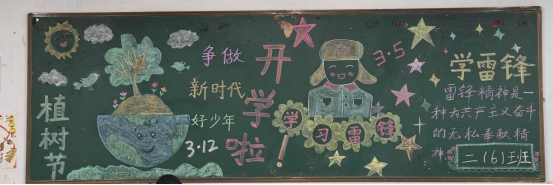 植树节
争做
新时代
好少年
3.12
开学啦
学习雷锋
3.5
学雷锋
雷锋精神是一
种为共产主义奋斗
的无私奉献精
神
二(6)班